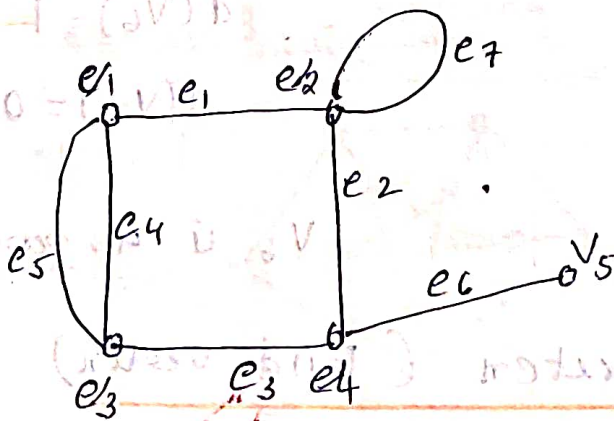 e1 e1 e2 e7
e2
e4
e5
e6 V5
e3 e3 e4